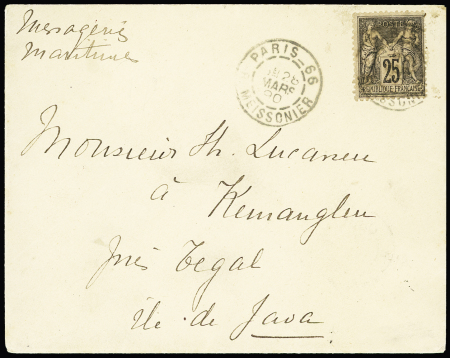 Messageries
Maritimes
PARIS-66
26
MARS
90
MEISSONIER
POSTE
25
REPUBLIQUE FRANÇAISE
Monsieur Th. Lucassen
à
Kemanglen
près Tegal
île de Java